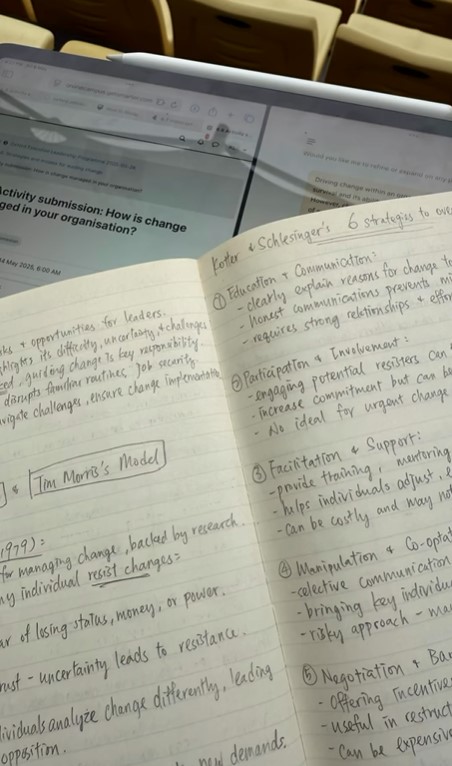 Activity submission: How is change
ged in your organisation?
May 2025, 6:00 AM
Would you like to refine or expand on any
Driving change within an
However,
ks & opportunities for leaders.
its difficulty, uncertainty, & challenges
guiding change is key responsibility.
disrupts familiar routines, job security.
navigate challenges, ensure change implementation
& Tim Morris's Model
1979):
for managing change, backed by research.
ny individual resist changes:
ar of losing status, money, or power.
rust - uncertainty leads to resistance.
dividuals analyze change differently, leading
opposition.
new demands.
Kotler & Schlesinger's 6 strategies to ove
① Education & Communication:
- clearly explain reasons for change to
- Honest communications prevents mi
- requires strong relationships & effor
② Participation & Involvement:
- engaging potential resisters can
- increase commitment but can be
- No ideal for urgent change
③ Facilitation & Support:
- provide training, mentoring
- helps individuals adjust, e
- can be costly and may not
④ Manipulation & Co-optat
- celective communication
- bringing key individu
- risky approach - ma
⑤ Negotiation & Bar
- Offering incentive
- useful in restruct
- can be expensiv